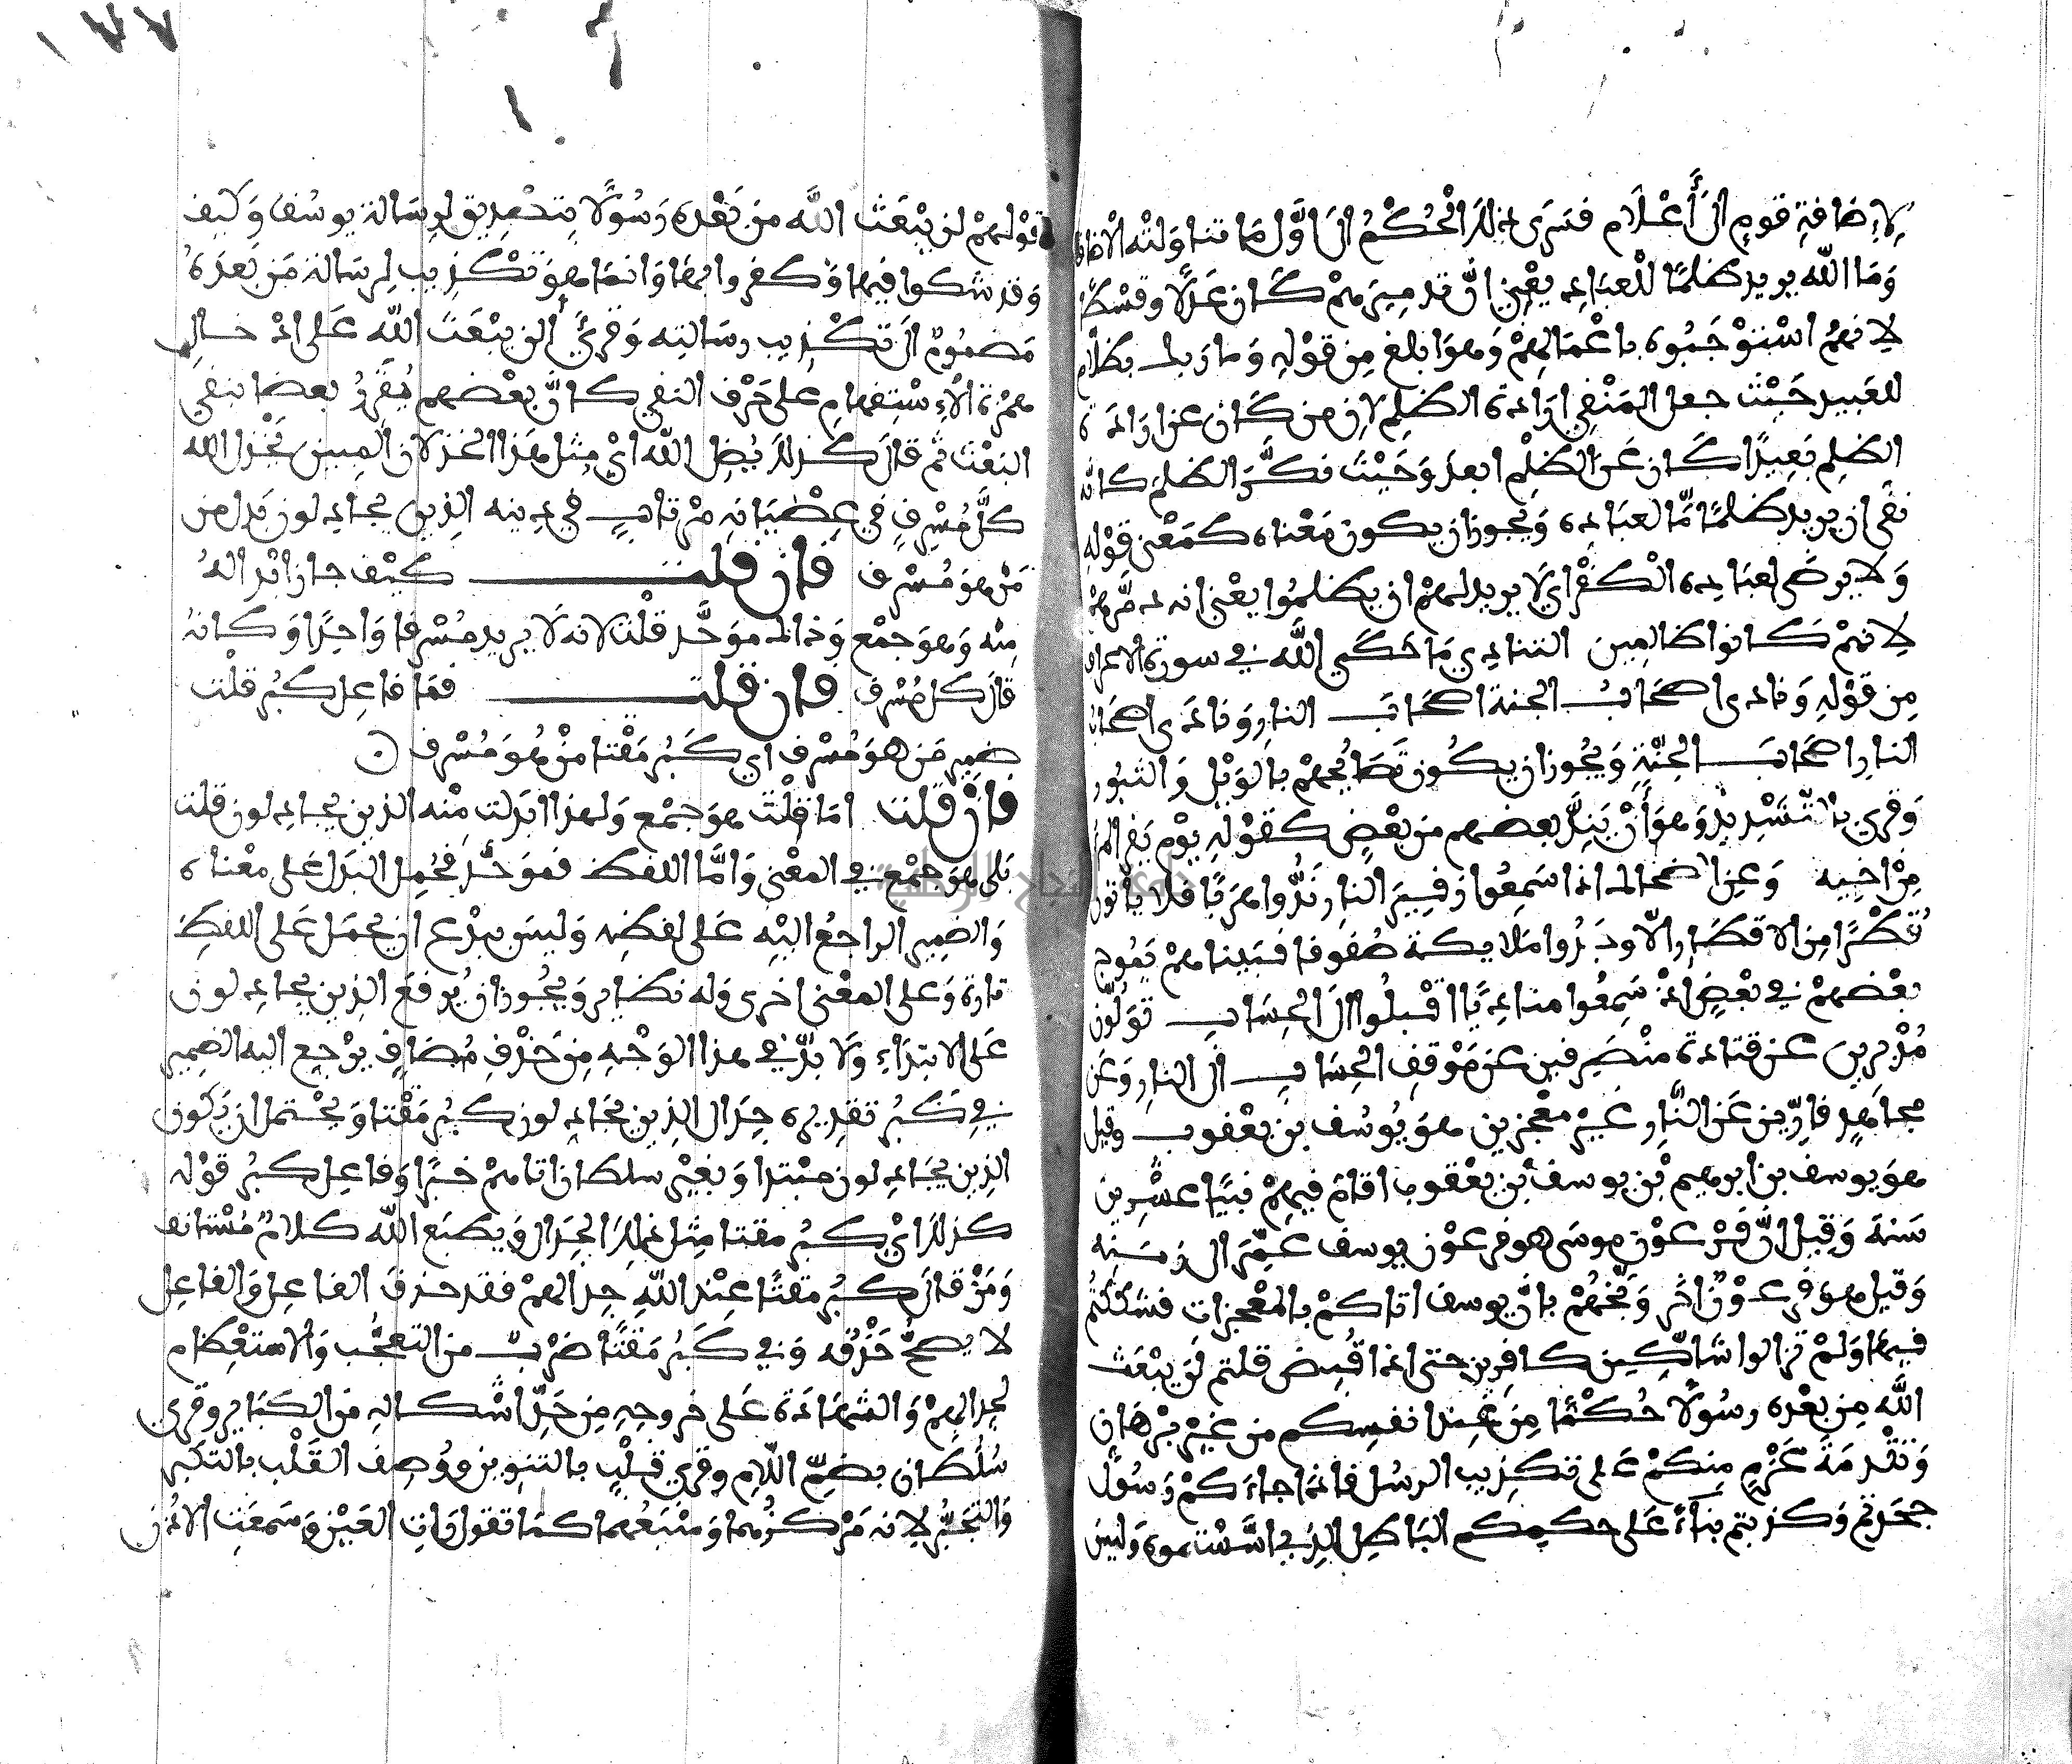 لإضافة قوم الى أعلام فسرى ذلك الحكم الى اول ما تناولته الاضافة
وما الله يريد ظلما للعباد يعني ان تدميرهم كان عدلا وقسطا
لانهم استوجبوه باعمالهم وهو ابلغ من قوله وما ربك بظلام
للعبيد حيث جعل المنفي ارادة الظلم لان من كان عن ارادة
الظلم بعيدا كان عن الظلم ابعد وحيث نكر الظلم كانه
نفى ان يريد ظلما ما لعباده ويجوز ان يكون معناه كمعنى قوله
ولا يرضى لعباده الكفر اي لا يريد لهم ان يظلموا يعني انه دمرهم
لانهم كانوا ظالمين التنادي ما حكى الله في سورة الاعراف
من قوله ونادى اصحاب الجنة اصحاب النار ونادى اصحاب
النار اصحاب الجنة ويجوز ان يكون تصايحهم بالويل والثبور
وقرئ بالتشديد وهو أن يند بعضهم من بعض كقوله يوم يفر المرء
من اخيه وعن الضحاك اذا سمعوا زفير النار ندوا هربا فلا ياتون
قطرا من الاقطار الا وجدوا ملايكة صفوفا فبينا هم يموج
بعضهم في بعض اذ سمعوا مناديا اقبلوا الى الحساب تولون
مدبرين عن قتادة منصرفين عن موقف الحساب الى النار وعن
مجاهد فارين عن النار غير معجزين هو يوسف بن يعقوب وقيل
هو يوسف بن ابرهيم بن يوسف بن يعقوب اقام فيهم نبيا عشرين
سنة وقيل ان فرعون موسى هو فرعون يوسف عمر الى زمنه
وقيل هو فرعون اخر وبخهم بان يوسف اتاكم بالمعجزات فشككتم
فيها ولم تزالوا شاكين كافرين حتى اذا قبض قلتم لن يبعث
الله من بعده رسولا حكما من عند انفسكم من غير برهان
وتقدمة عزم منكم على تكذيب الرسل فاذا جاءكم رسول
جحدتم وكذبتم بناء على حكمكم الباطل الذي اسستموه وليس
قولهم لن يبعث الله من بعده رسولا بتصديق لرسالة يوسف وكيف
وقد شكوا فيها وكفروا بها وانما هو تكذيب لرسالة من بعده
مضموم الى تكذيب رسالته وقرئ ألن يبعث الله على ادخال
همزة الاستفهام على حرف النفي كان بعضهم يقرر بعضا بنفي
البعث ثم قال كذلك يضل الله اي مثل هذا الخذلان المبين يخذل الله
كل مسرف في عصيانه مرتاب في دينه الذين يجادلون بدل من
من هو مسرف فان قلت كيف جاز ابداله
منه وهو جمع وذاك موحد قلت لانه لا يريد مسرفا واحدا وكانه
قال كل مسرف فان قلت فما فاعل كبر قلت
ضمير من هو مسرف اي كبر مقتا من هو مسرف
فان قلت اما قلت هو جمع ولهذا ابدلت منه الذين يجادلون قلت
بلى هو جمع في المعنى واما اللفظ فموحد فحمل البدل على معناه
والضمير الراجع اليه على لفظه وليس ببدع ان يحمل على اللفظ
تارة وعلى المعنى اخرى وله نظاير ويجوز ان يرفع الذين يجادلون
على الابتداء ولا بد في هذا الوجه من حذف مضاف يرجع اليه الضمير
في كبر تقديره جدال الذين يجادلون كبر مقتا ويحتمل ان يكون
الذين يجادلون مبتدا وبغير سلطان اتاهم خبرا وفاعل كبر قوله
كذلك اي كبر مقتا مثل ذلك الجدال ويطبع الله كلام مستانف
ومن قال كبر مقتا عند الله جدالهم فقد حذف الفاعل والفاعل
لا يصح حذفه وفي كبر مقتا ضرب من التعجب والاستعظام
لجدالهم والشهادة على خروجه من حد اشكاله من الكباير وقرئ
سلطان بضم اللام وقرئ قلب بالتنوين ووصف القلب بالتكبر
والتجبر لانه مركزهما ومنبعهما كما تقول رات العين وسمعت الاذن